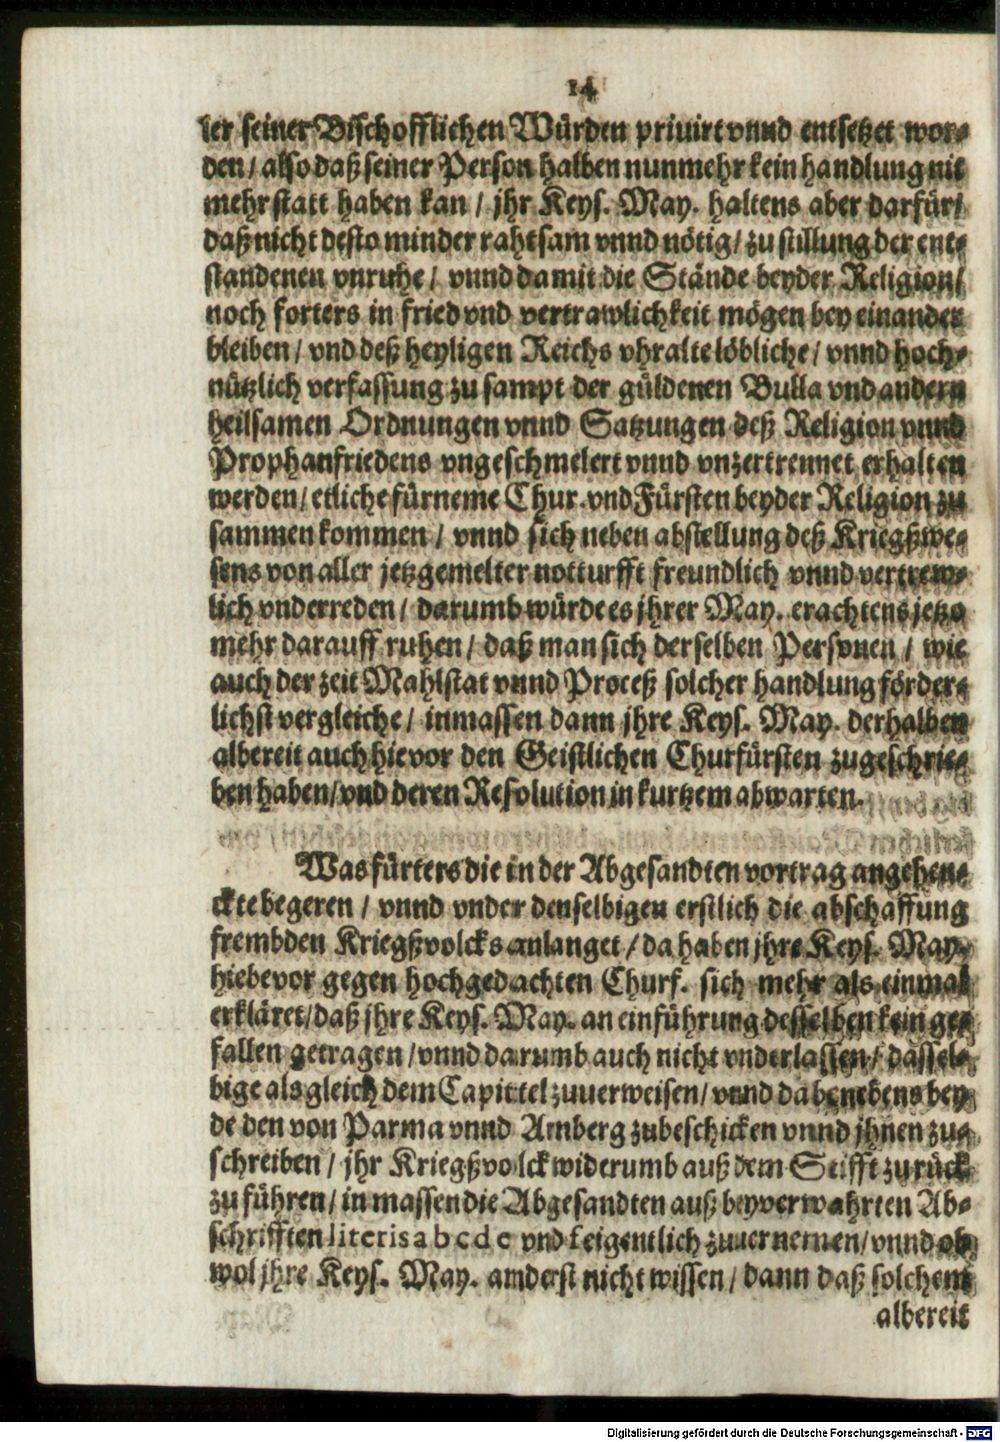 14
ler seiner Bischofflichen Würden priuirt vnnd entsetzet wor-
den / also daß seiner Person halben nunmehr kein handlung nit
mehr statt haben kan / jhr Keys. May. haltens aber darfür/
daß nicht desto minder rahtsam vnnd nötig / zu stillung der ent-
standenen vnruhe / vnnd damit die Stände beyder Religion/
noch forters in fried vnd vertrawlichkeit mögen bey einander
bleiben / vnd deß heyligen Reichs vhralte löbliche / vnnd hoch-
nützlich verfassung zu sampt der güldenen Bulla vnd andern
heilsamen Ordnungen vnnd Satzungen deß Religion vnnd
Prophanfriedens vngeschmelert vnnd vnzertrennet erhalten
werden / etliche fürneme Chur. vnd Fürsten beyder Religion zu
sammen kommen / vnnd sich neben abstellung deß Kriegßwe-
sens von aller jetzgemelter notturfft freundlich vnnd vertrew-
lich vnderreden / darumb würde es jhrer May. erachtens jetzo
mehr darauff ruhen / daß man sich derselben Personen / wie
auch der zeit Mahlstat vnnd Proceß solcher handlung förder-
lichst vergleiche / inmassen dann jhre Keys. May. derhalben
albereit auch hievor den Geistlichen Churfürsten zugeschrie-
ben haben/vnd deren Resolution in kurtzem abwarten.
Was fürters die in der Abgesandten vortrag angehen-
ckte begeren / vnnd vnder denselbigen erstlich die abschaffung
frembden Kriegßvolcks anlanget / da haben jhre Keys. May.
hiebevor gegen hochgedachten Churf. sich mehr als einmal
erkläret/daß jhre Keys. May. an einführung desselben kein ge-
fallen getragen /vnnd darumb auch nicht vnderlassen / dassel-
bige als gleich dem Capittel zuuerweisen / vnnd da benebens bey
de den von Parma vnnd Arnberg zubeschicken vnnd jhnen zu-
schreiben / jhr Kriegßvolck widerumb auß dem Stifft zurück
zu führen / in massen die Abgesandten auß beyverwahrten Ab-
schrifften literis a b c d e vnd f eigentlich zuuernemen / vnnd ob
wol jhre Keys. May. anderst nicht wissen / dann daß solchem
albereit
Digitalisierung gefördert durch die Deutsche Forschungsgemeinschaft - DFG